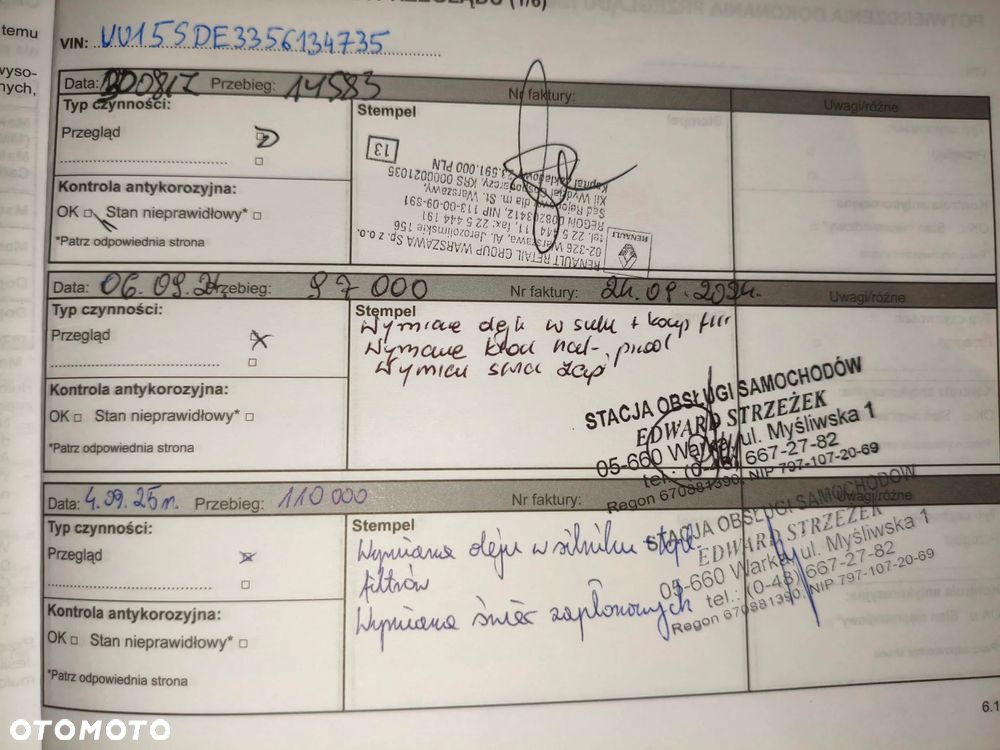 PRZEGLĄDU (1/6)
temu
VIN: UU15SDE3356134735
wyso-
nych,
Data: 300817 Przebieg: 14583 Nr faktury: Uwagi/różne
Typ czynności:
Stempel
Przegląd
13
Kontrola antykorozyjna:
OK Stan nieprawidłowy*
*Patrz odpowiednia strona
RENAULT
RENAULT RETAIL GROUP WARSZAWA Sp. z o.o.
02-326 Warszawa, Al. Jerozolimskie 156
tel. 22 5 444 111, fax: 22 5 444 191
REGON 008233412, NIP 113-00-09-591
Sąd Rejonowy dla m. St. Warszawy,
XII Wydział Gospodarczy, KRS 0000021035
Kapitał zakładowy 23.591.000 PLN
Data: 06.09.24 Przebieg: 97 000 Nr faktury: 24.09.2024. Uwagi/różne
Typ czynności:
Stempel
Przegląd
Wymiane
Wymiane
Kontrola antykorozyjna:
OK Stan nieprawidłowy*
*Patrz odpowiednia strona
STACJA OBSŁUGI SAMOCHODÓW
EDWARD STRZEŻEK
05-660 Warka, ul. Myśliwska 1
tel.: (0-48) 667-27-82
Regon 670881390, NIP 797-107-20-69
Data: 4.09.25r. Przebieg: 110 000 Nr faktury: Uwagi/różne
Typ czynności:
Stempel
Przegląd
Wymiana oleju w silniku + kpl.
filtrów
Wymiana świec zapłonowych
Kontrola antykorozyjna:
OK Stan nieprawidłowy*
*Patrz odpowiednia strona
STACJA OBSŁUGI SAMOCHODÓW
EDWARD STRZEŻEK
05-660 Warka, ul. Myśliwska 1
tel.: (0-48) 667-27-82
Regon 670881390, NIP 797-107-20-69
6.1
OTOMOTO